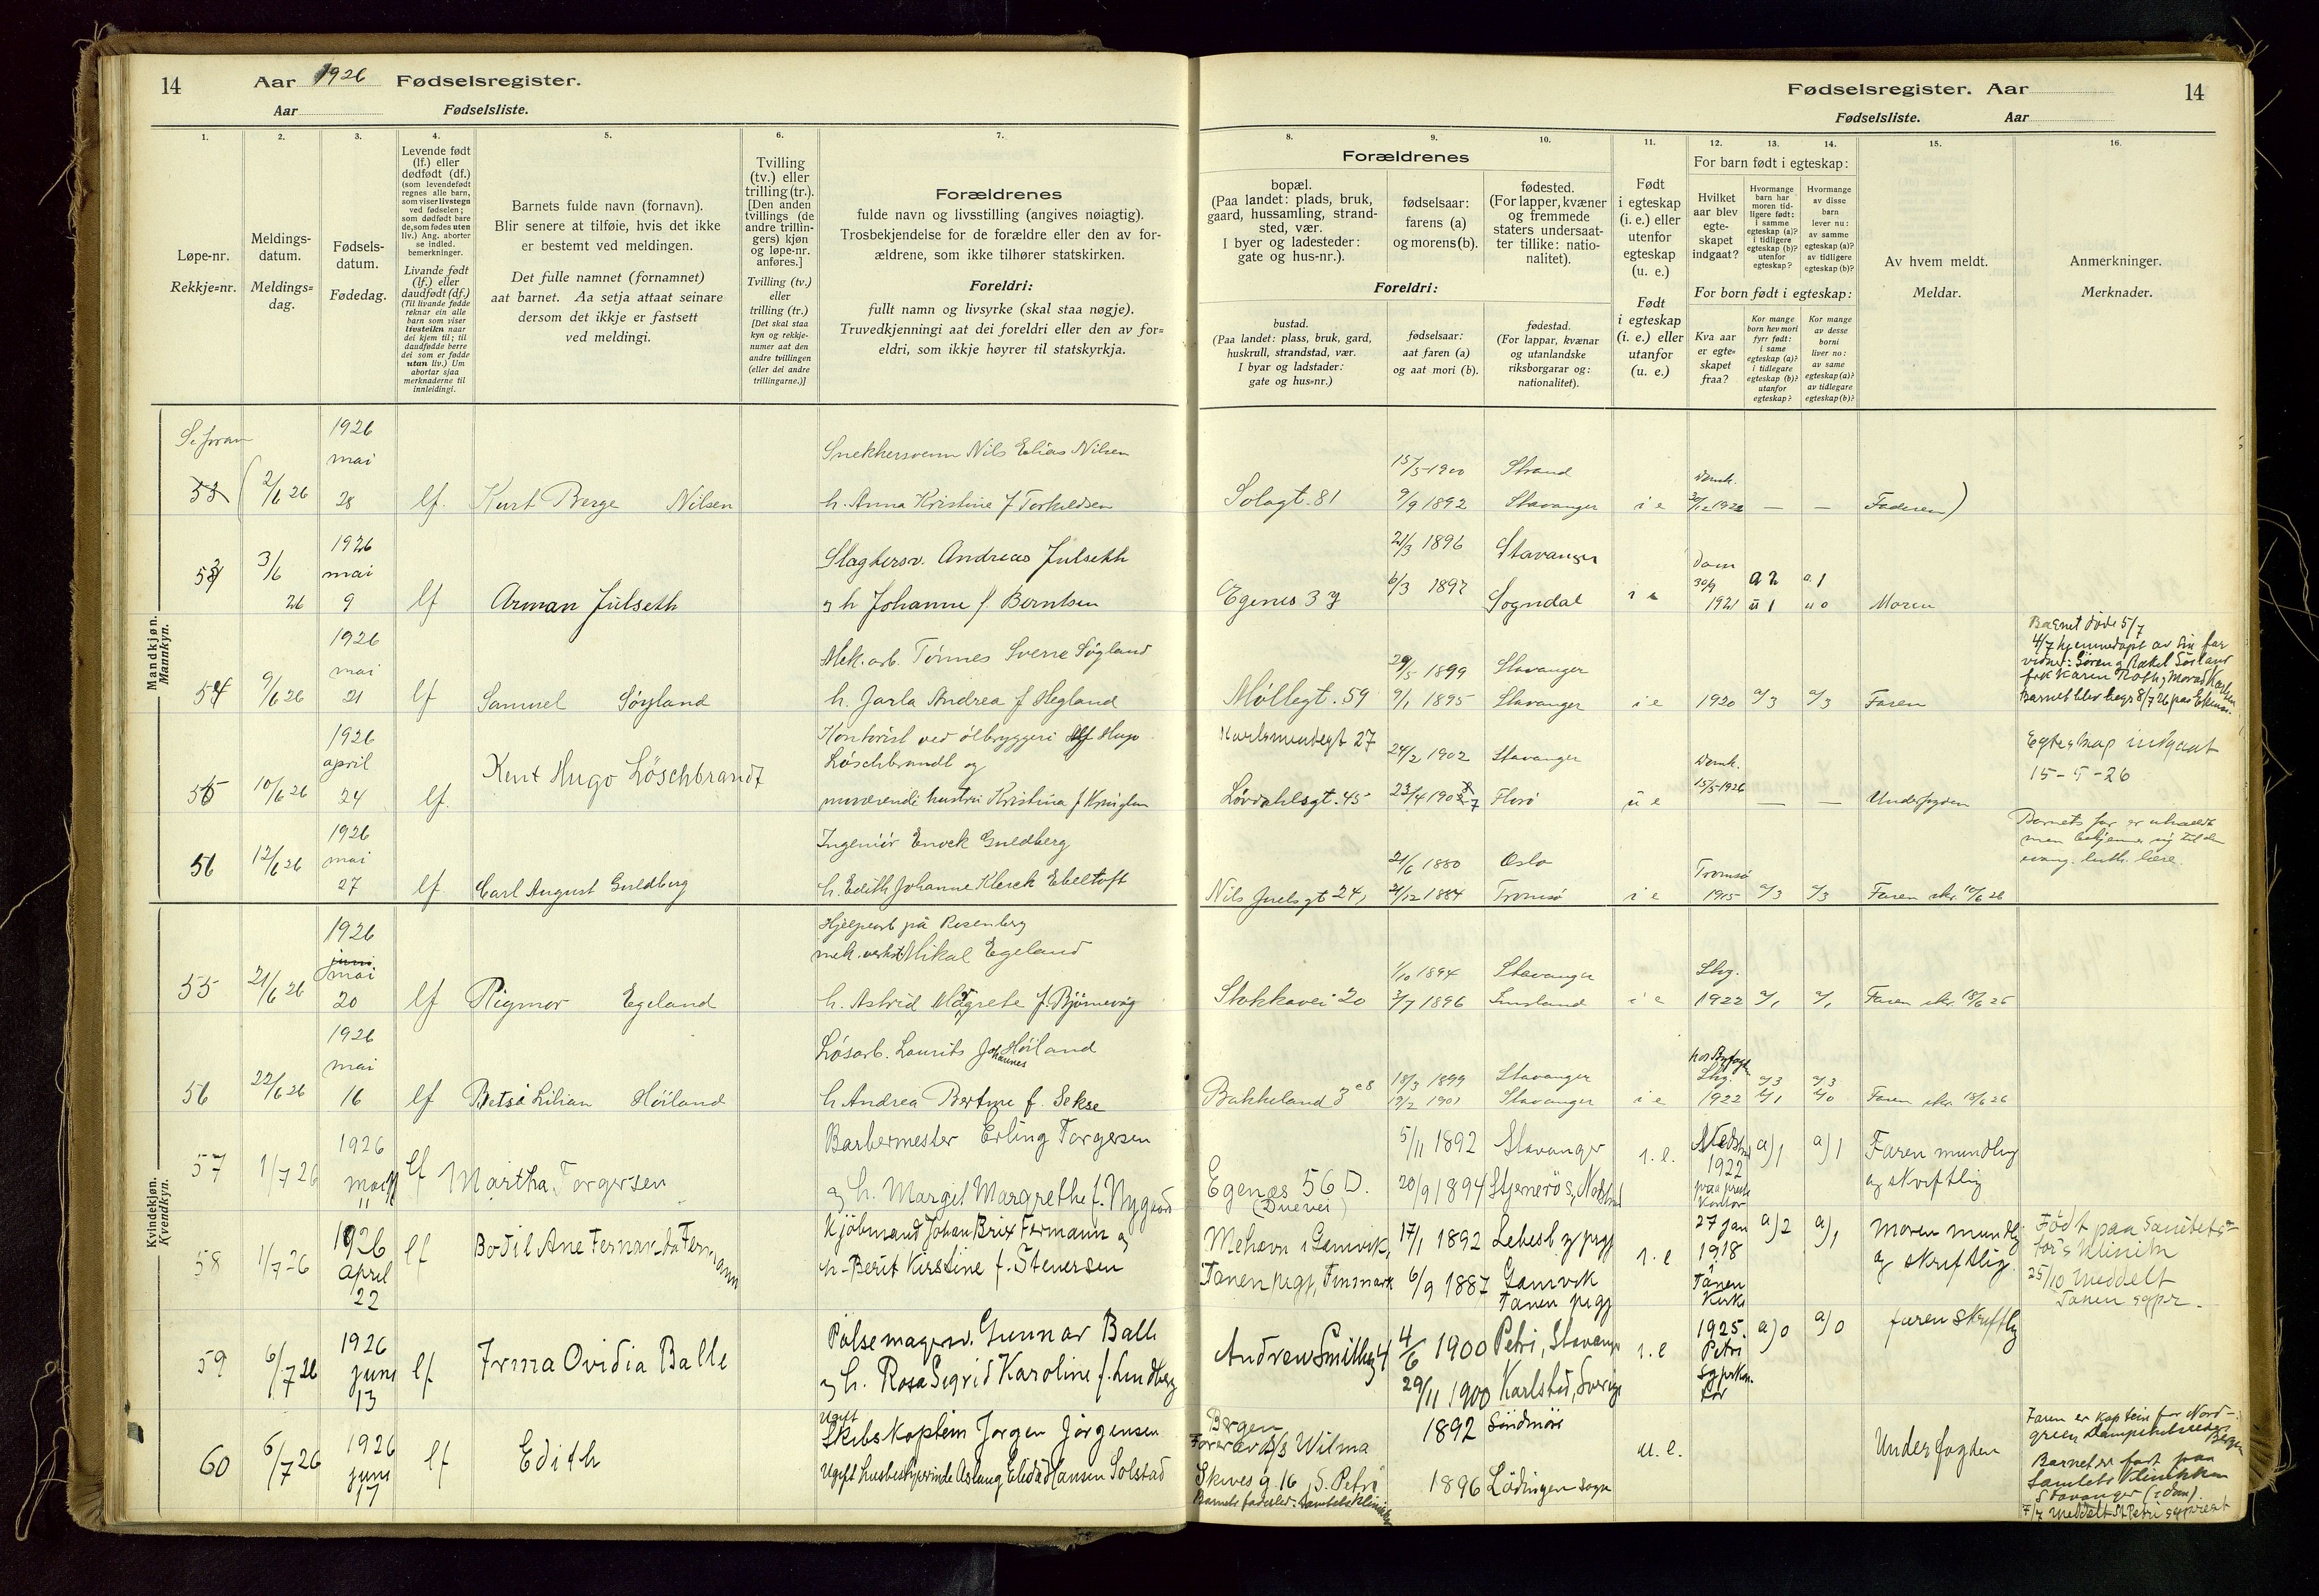 14
Aar 1926 Fødselsregister.
Aar Fødselsliste.
1.
2.
3.
4.
5.
6.
7.
Løpe-nr.
Rekkje-nr.
Meldings-
datum.
Meldings-
dag.
Fødsels-
datum.
Fødedag.
Levende født
(lf.) eller
dødfødt (df.)
(som levendefødt
regnes alle barn,
som viser livstegn
ved fødselen;
som dødfødt bare
de, som fødes uten
liv.) Ang. aborter
se indled.
bemerkninger.
Livande født
(lf.) eller
daudfødt (df.)
(Til livande fødde
reknar ein alle
barn som viser
livsteikn naar
dei kjem til; til
daudfødde berre
dei som er fødde
utan liv.) Um
abortar sjaa
merknaderne til
innleidingi.
Barnets fulde navn (fornavn).
Blir senere at tilføie, hvis det ikke
er bestemt ved meldingen.
Det fulle namnet (fornamnet)
aat barnet. Aa setja attaat seinare
dersom det ikkje er fastsett
ved meldingi.
Tvilling
(tv.) eller
trilling (tr.).
[Den anden
tvillings (de
andre trillin-
gers) kjøn
og løpe-nr.
anføres.]
Tvilling (tv.)
eller
trilling (tr.)
[Det skal staa
kyn og rekkje-
numer aat den
andre tvillingen
(eller dei andre
trillingarne.)]
Forældrenes
fulde navn og livsstilling (angives nøiagtig).
Trosbekjendelse for de forældre eller den av for-
ældrene, som ikke tilhører statskirken.
Foreldri:
fullt namn og livsyrke (skal staa nøgje).
Truvedkjenningi aat dei foreldri eller den av for-
eldri, som ikkje høyrer til statskyrkja.
Mandkjøn.
Mannkyn.
53 2/6 26 1926 mai 28 lf. Kurt Berge Nilsen
Snekkersvenn Nils Elias Nilsen
h. Anna Kristine f Torkildsen
53 3/6 26 1926 mai 9 lf Arman Julseth
Slagtersv. Andreas Julseth
og h Johanne f. Berntsen
54 9/6 26 1926 mai 21 lf Samuel Søyland
Mek. arb. Tönnes Sverre Söyland
h. Jarla Andrea f Hegland
55 10/6 26 1926 april 24 lf. Kent Hugo Löschbrandt
Kontorist ved ølbryggeri Alf Hugo
Löschbrandt og
nuværende hustru Kristina f
56 12/6 26 1926 mai 27 lf Carl August Guldberg
Ingeniör Enock Guldberg
h. Edith Johanne Klerck Ebeltoft
Kvindekjøn.
Kvendkyn.
55 21/6 26 1926 mai 20 lf Rigmor Egeland
Hjelpearb på Rosenberg
mek. verkst Mikal Egeland
h. Astrid Magrete f. Björnevåg
56 22/6 26 1926 mai 16 lf Betsi Lilian Höiland
Lösarb. Laurits Johannes Höiland
h Andrea Bertine f. Sekse
57 1/7 26 1926 mai 11 lf Martha Torgersen
Barbermester Erling Torgersen
og h. Margit Margrethe f. Nygaard
58 1/7-26 1926 april 22 lf Bodil Ane Fernanda Fermann
Kjöbmand Johan Brix Fermann og
h- Berit Kirstine f. Stenersen
59 6/7 26 1926 juni 13 lf Irma Ovidia Balle
Pölsemagersv. Gunnar Balle
og h. Rosa Sigrid Karoline f. Lindberg
60 6/7 26 1926 juni 17 lf Edith
Ugift
Skibskaptein Jørgen Jörgensen
Ugift husbestyrerinde Aslaug Elida Hansen Solstad
Fødselsregister. Aar
14
Fødselsliste. Aar
8.
9.
10.
11.
12.
13.
14.
15.
16.
Forældrenes
bopæl.
(Paa landet: plads, bruk,
gaard, hussamling, strand-
sted, vær.
I byer og ladesteder:
gate og hus-nr.).
fødselsaar:
farens (a)
og morens (b).
fødested.
(For lapper, kvæner
og fremmede
staters undersaat-
ter tillike: natio-
nalitet).
Foreldri:
bustad.
(Paa landet: plass, bruk, gard,
huskrull, strandstad, vær.
I byar og ladstader:
gate og hus-nr.)
fødselsaar:
aat faren (a)
og aat mori (b).
fødestad.
(For lappar, kvænar
og utanlandske
riksborgarar og:
nationalitet).
Født
i egteskap
(i. e.) eller
utenfor
egteskap
(u. e.)
Født
i egteskap
(i. e.) eller
utanfor
(u. e.)
For barn født i egteskap:
Hvilket
aar blev
egte-
skapet
indgaat?
Hvormange
barn har
moren tid-
ligere født:
i samme
egteskap (a)?
i tidligere
egteskap (b)?
utenfor
egteskap?
Hvormange
av disse
barn
lever nu:
av samme
egteskap (a)?
av tidligere
egteskap (b)?
For born født i egteskap:
Kva aar
er egte-
skapet
fraa?
Kor mange
born hev mori
fyrr født:
i same
egteskap (a)?
i tidlegare
egteskap (b)?
utanfor
egteskap?
Kor mange
av desse
borni
liver no:
av same
egteskap (a)?
av tidlegare
egteskap (b)?
Av hvem meldt.
Meldar.
Anmerkninger.
Merknader.
Solagt. 81 15/5-1900 Strand
9/9 1892 Stavanger i e Domk. 30/12 1922 — — Faderen)
Egenes 21/3 1896 Stavanger
6/3 1892 Sogndal i e Dom 30/9 1921 a 2 u 1 a.1 u 0 Moren
Møllegt. 59 29/5 1899 Stavanger
9/1 1895 Stavanger i e 1920 a/3 a/3 Faren
Barnet døde 5/7
4/7 hjemmedøpt av sin far
Barnet blev begr 8/7 26 paa
Karlsminnegt 27 24/2 1902 Stavanger
Lövdahlsgt. 45 23/4 1907 Florö u e Domk. 15/5-1926 — — Underfogden
Egteskap indgaat
15-5-26
Nils Juels gt 24, 21/6 1880 Oslo
21/12 1884 Tromsö i e Tromsö 1915 a/3 a/3 Faren skr. 10/6 26
Barnets far er
men bekjenner sig til den
evang. luth. lære.
Stokkavei 20 1/10 1894 Stavanger
3/7 1896 i e Stvg. 1922 a/1 a/1 Faren skr. 18/6 26
Bakkeland 18/3 1899 Stavanger
12/2 1901 Stavanger i e Stvg. 1922 a/3 a/3 Faren skr. 18/6 26
Egenes 56 D.
(Duevei)
5/11 1892 Stavanger
20/9 1894 Stjernerö i. e. 1922 paa kontor a) 1 a) 1 Faren mundtlig
og skriftlig
Mehavn i Gamvik,
Tanen prgj, Finmark
17/1 1892 Lebesby prgj
6/9 1887 Gamvik
Tanen prgj
i. e 27 jan 1918 i Tanen Kirke a) 2 a) 1 Moren mundtlig
og skriftlig
Født paa Sanitets-
for's Klinik
25/10 Meddelt
Tanen sgpr.
Andrew Smithsg 4 4/6 1900 Petri, Stavanger
29/11 1900 Karlstad, Sverige
i. e 1925. Petri a) 0 a) 0 faren skriftlig
Bergen
Förer av S/S Wilma 1892 Söndmöre
u. e.
Skivesg 16, S. Petri 1896 Lödingen sogn
Underfogden
Faren er kaptein for Nord-
green Dampskibsrederi Bergen
Barnet er født paa
Sanitets Klinikken
Stavanger (i dom)
7/7 Meddelt St Petri sgpr